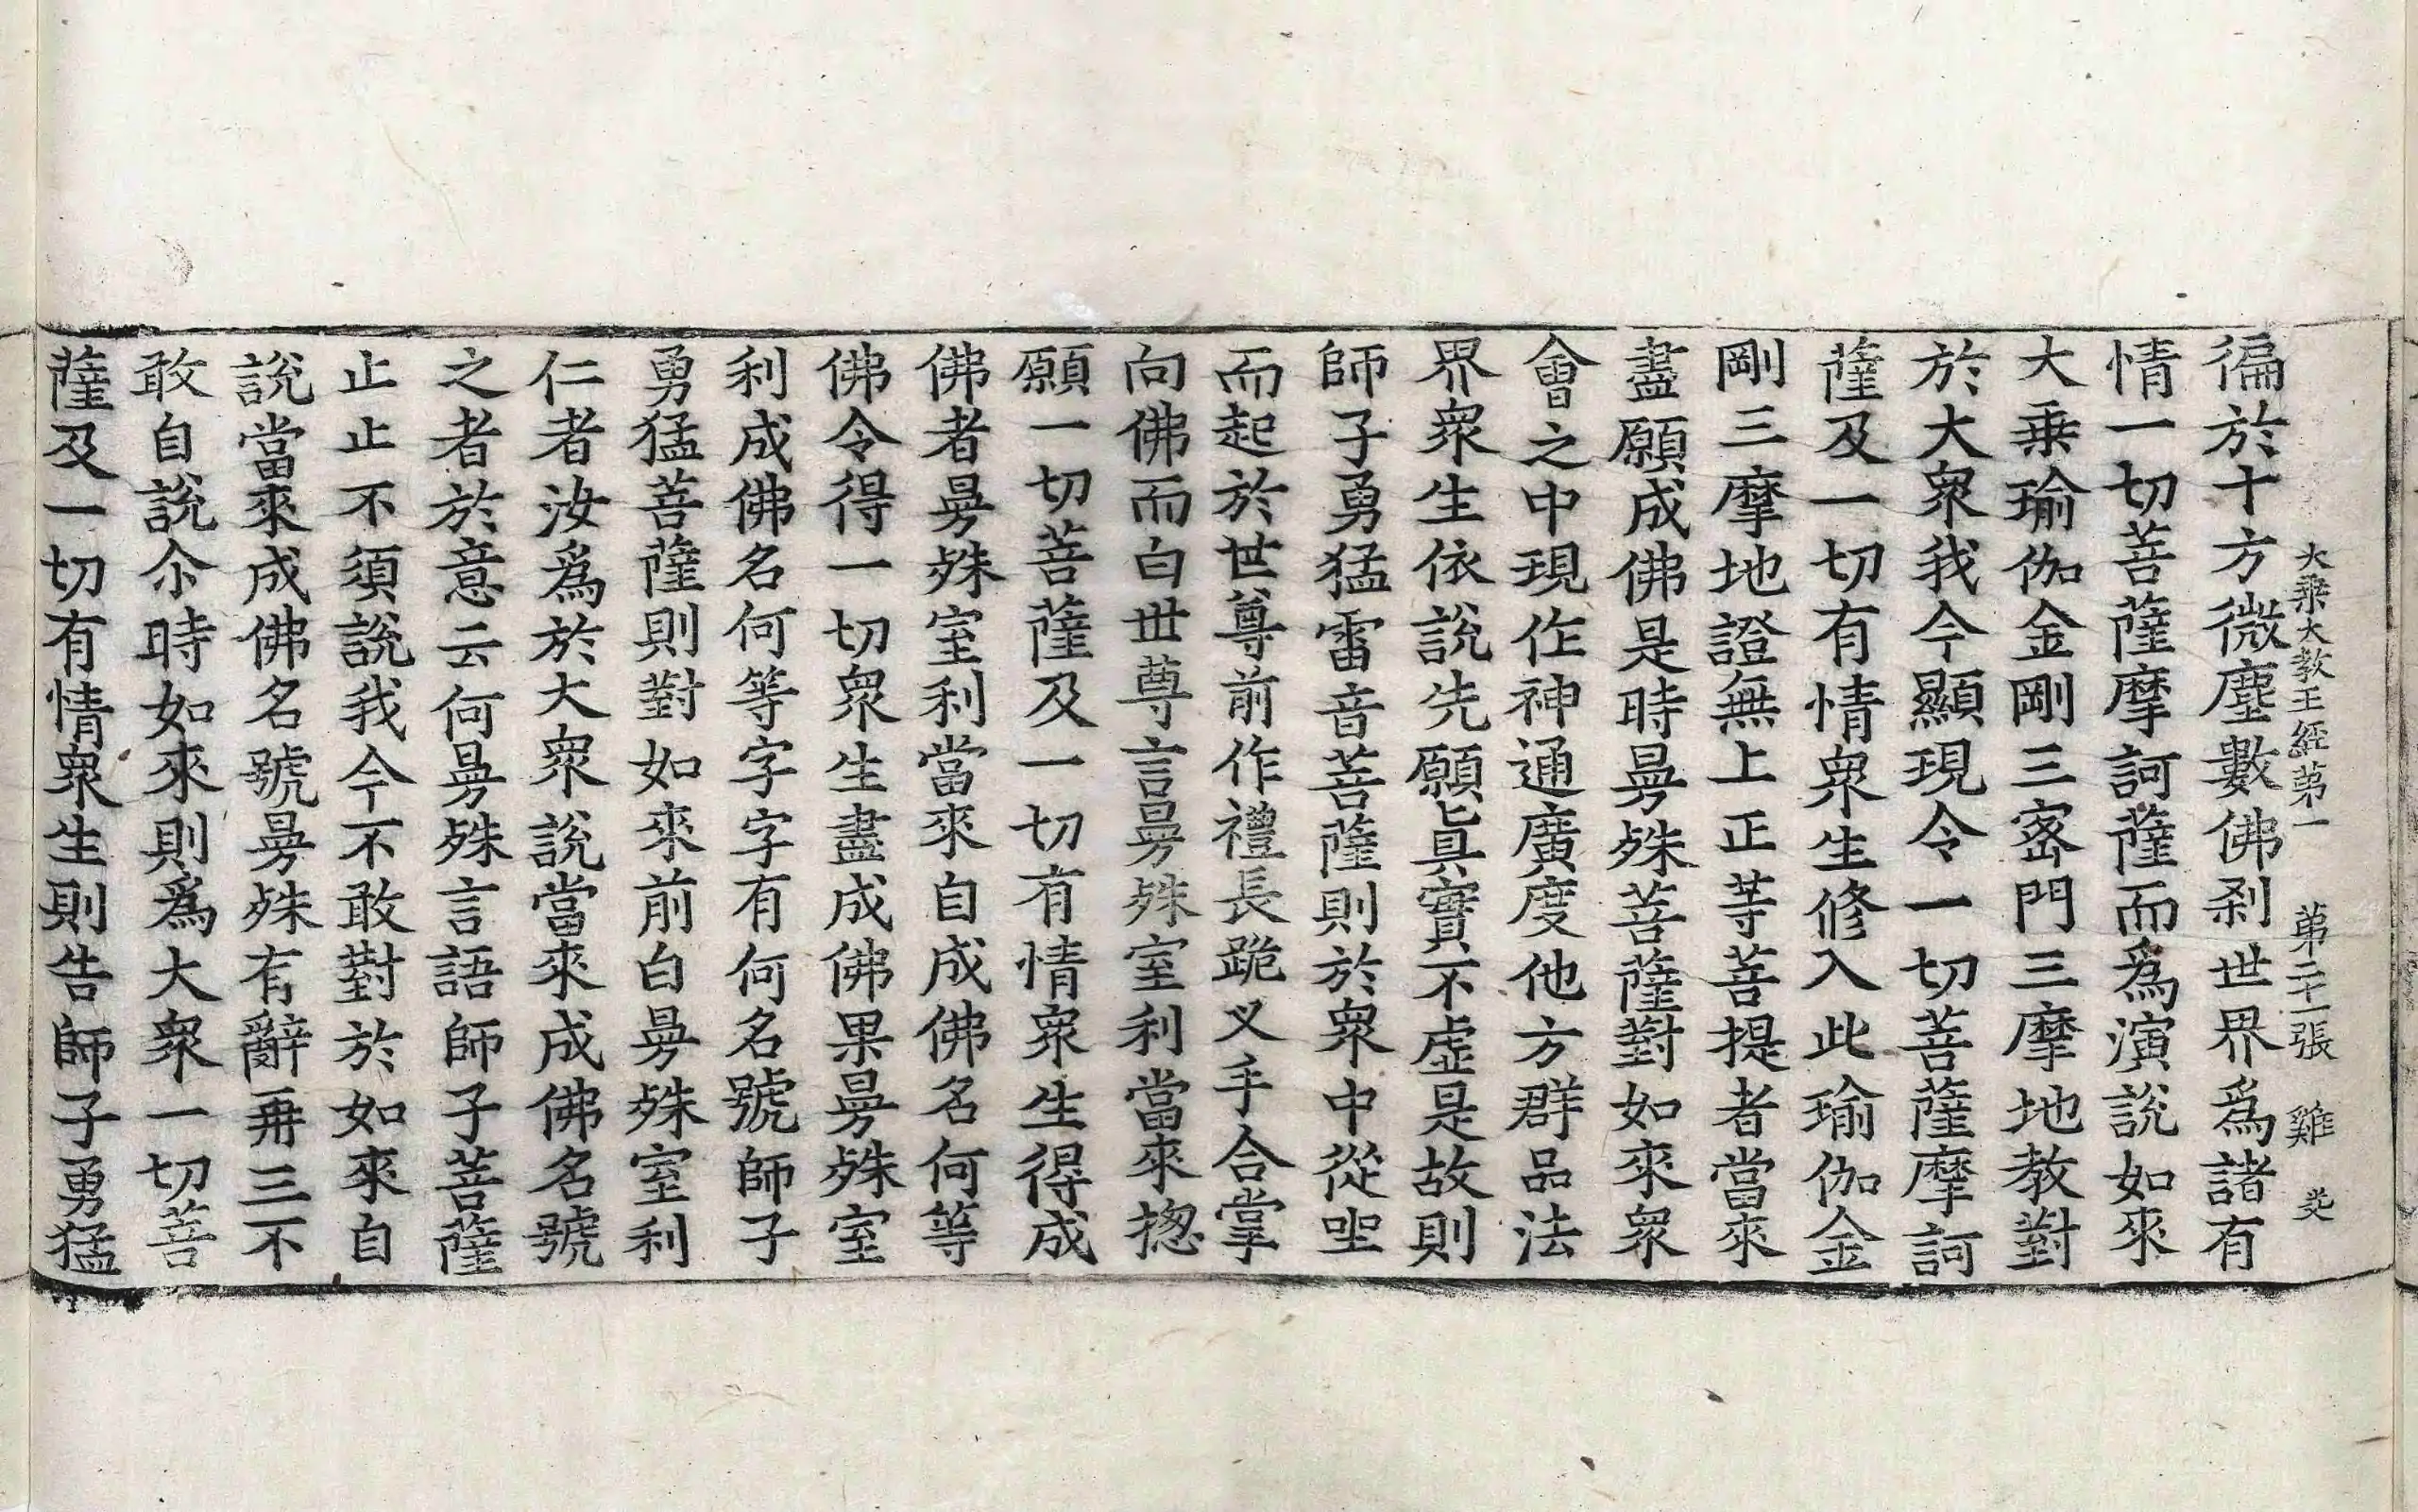 大乘大教王經第一 第二十一張 雞
徧於十方微塵數佛刹世界爲諸有
情一切菩薩摩訶薩而爲演說如來
大乗瑜伽金剛三密門三摩地教對
於大衆我今顯現令一切菩薩摩訶
薩及一切有情衆生修入此瑜伽金
剛三摩地證無上正等菩提者當來
盡願成佛是時曼殊菩薩對如來衆
會之中現作神通廣度他方群品法
界衆生依說先願眞實不虛是故則
師子勇猛雷音菩薩則於衆中從坐
而起於世尊前作禮長跪叉手合掌
向佛而白世尊言曼殊室利當來揔
願一切菩薩及一切有情衆生得成
佛者曼殊室利當來自成佛名何等
佛令得一切衆生盡成佛果曼殊室
利成佛名何等字字有何名號師子
勇猛菩薩則對如來前白曼殊室利
仁者汝爲於大衆說當來成佛名號
之者於意云何曼殊言語師子菩薩
止止不須說我今不敢對於如來自
說當來成佛名號曼殊有辭再三不
敢自說尒時如來則爲大衆一切菩
薩及一切有情衆生則告師子勇猛